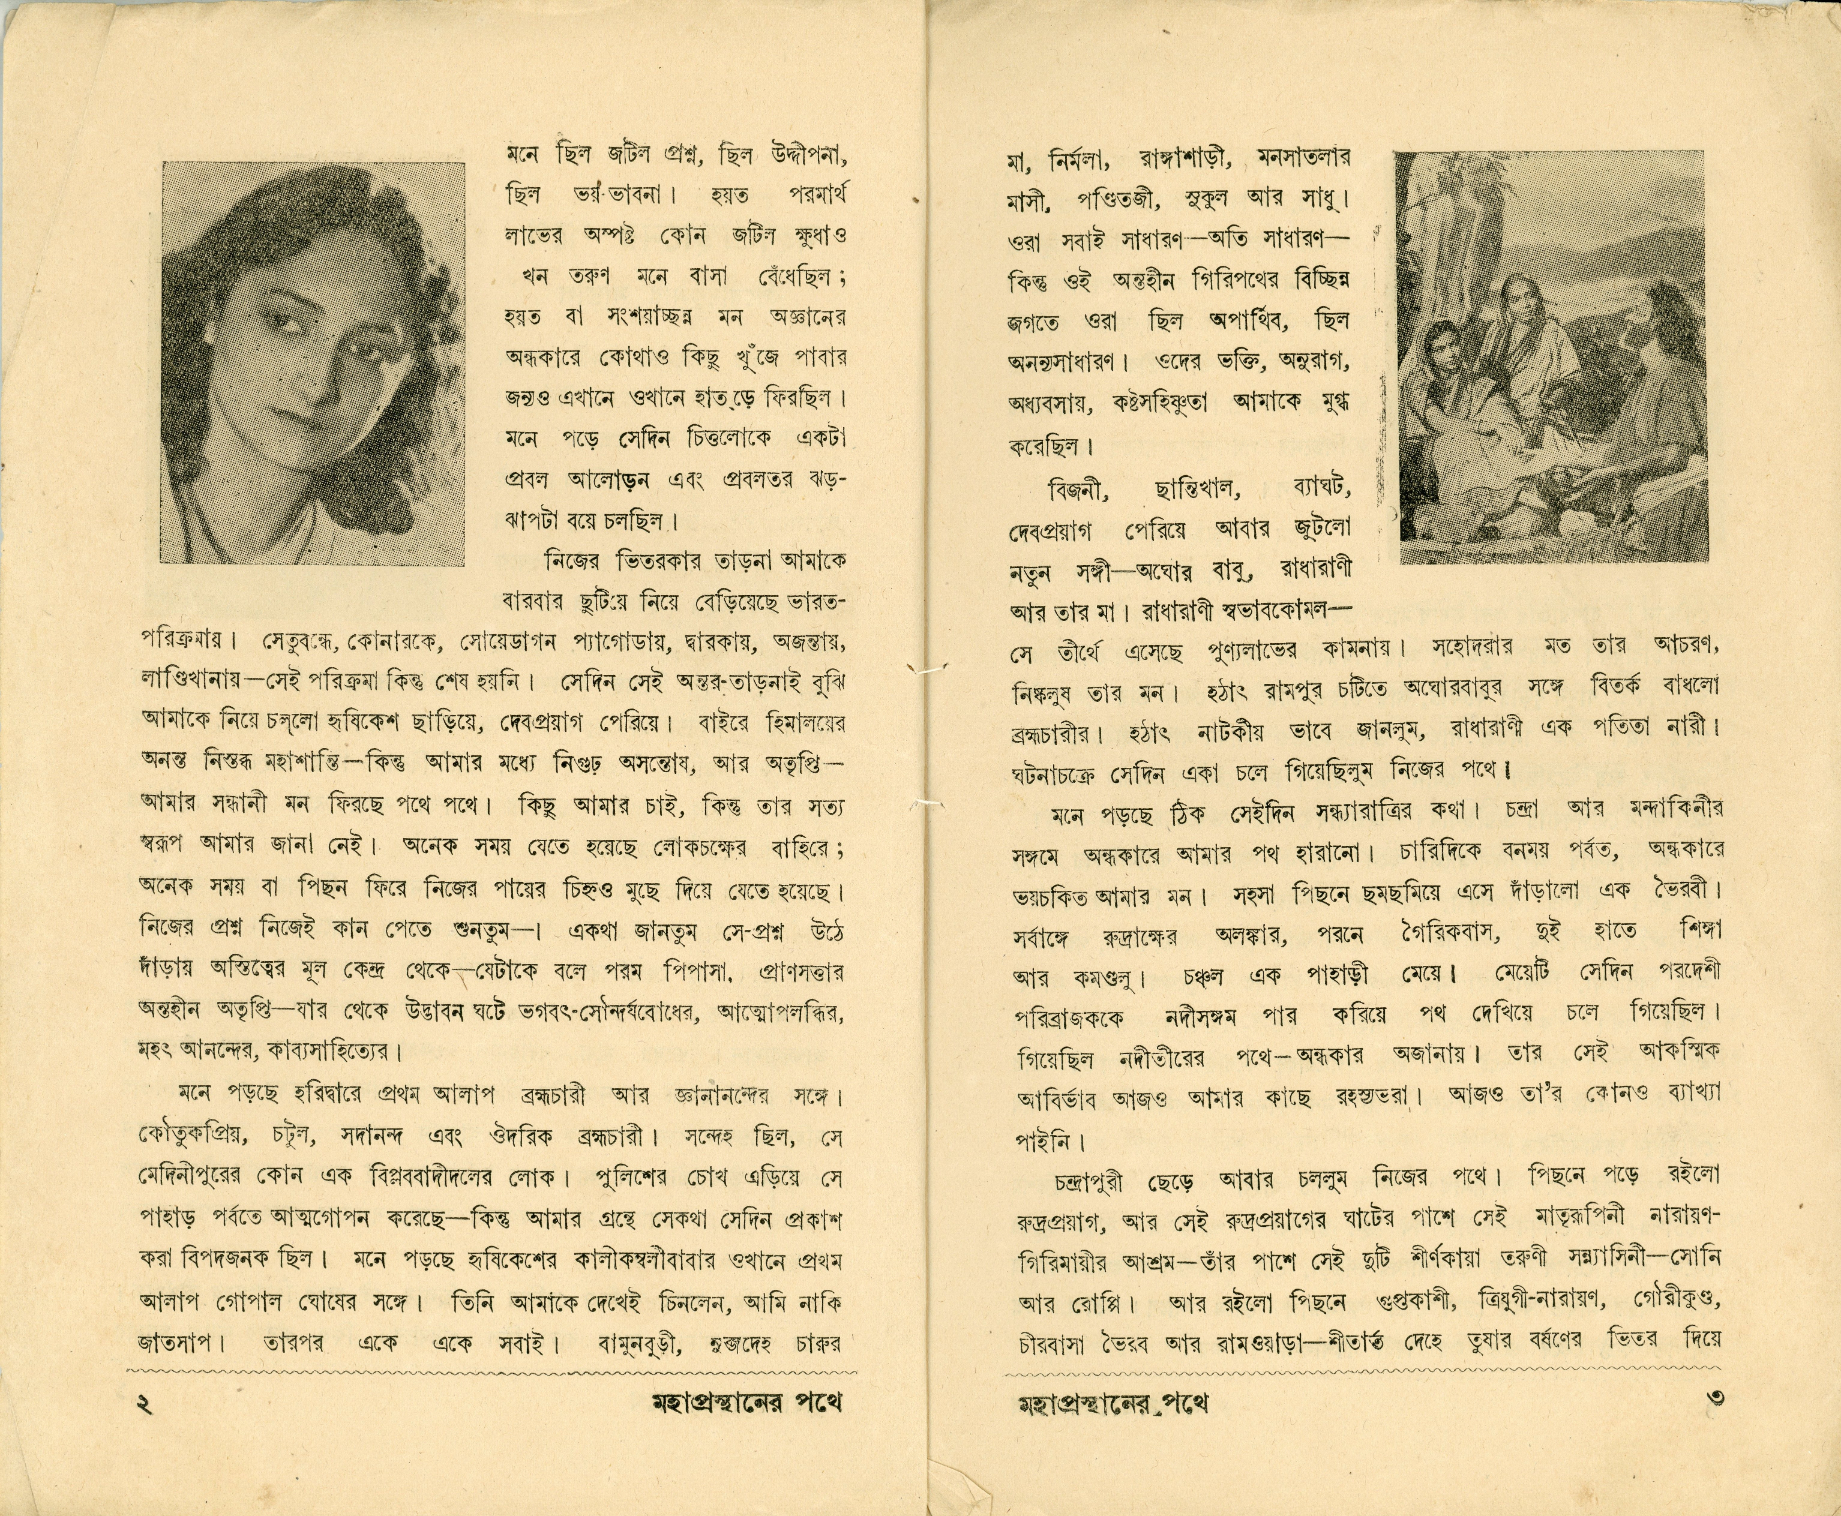 মনে ছিল জটিল প্রশ্ন, ছিল উদ্দীপনা,
ছিল ভয়-ভাবনা। হয়ত পরমার্থ
লাভের অস্পষ্ট কোন জটিল ক্ষুধাও
খন তরুণ মনে বাসা বেঁধেছিল;
হয়ত বা সংশয়াচ্ছন্ন মন অজ্ঞানের
অন্ধকারে কোথাও কিছু খুঁজে পাবার
জন্যও এখানে ওখানে হাতড়ে ফিরছিল।
মনে পড়ে সেদিন চিত্তলোকে একটা
প্রবল আলোড়ন এবং প্রবলতর ঝড়-
ঝাপটা বয়ে চলছিল।
নিজের ভিতরকার তাড়না আমাকে
বারবার ছুটিয়ে নিয়ে বেড়িয়েছে ভারত-
পরিক্রমায়। সেতুবন্ধে, কোনারকে, সোয়েডাগন প্যাগোডায়, দ্বারকায়, অজন্তায়,
লাণ্ডিখানায়—সেই পরিক্রমা কিন্তু শেষ হয়নি। সেদিন সেই অন্তর-তাড়নাই বুঝি
আমাকে নিয়ে চল্‌লো হৃষিকেশ ছাড়িয়ে, দেবপ্রয়াগ পেরিয়ে। বাইরে হিমালয়ের
অনন্ত নিস্তব্ধ মহাশান্তি—কিন্তু আমার মধ্যে নিগুঢ় অসন্তোষ, আর অতৃপ্তি—
আমার সন্ধানী মন ফিরছে পথে পথে। কিছু আমার চাই, কিন্তু তার সত্য
স্বরূপ আমার জানা নেই। অনেক সময় যেতে হয়েছে লোকচক্ষের বাহিরে;
অনেক সময় বা পিছন ফিরে নিজের পায়ের চিহ্নও মুছে দিয়ে যেতে হয়েছে।
নিজের প্রশ্ন নিজেই কান পেতে শুনতুম—। একথা জানতুম সে-প্রশ্ন উঠে
দাঁড়ায় অস্তিত্বের মূল কেন্দ্র থেকে—যেটাকে বলে পরম পিপাসা, প্রাণসত্তার
অন্তহীন অতৃপ্তি—যার থেকে উদ্ভাবন ঘটে ভগবৎ-সৌন্দর্যবোধের, আত্মোপলব্ধির,
মহৎ আনন্দের, কাব্যসাহিত্যের।
মনে পড়ছে হরিদ্বারে প্রথম আলাপ ব্রহ্মচারী আর জ্ঞানানন্দের সঙ্গে।
কৌতুকপ্রিয়, চটুল, সদানন্দ এবং ঔদরিক ব্রহ্মচারী। সন্দেহ ছিল, সে
মেদিনীপুরের কোন এক বিপ্লববাদীদলের লোক। পুলিশের চোখ এড়িয়ে সে
পাহাড় পর্বতে আত্মগোপন করেছে—কিন্তু আমার গ্রন্থে সেকথা সেদিন প্রকাশ
করা বিপদজনক ছিল। মনে পড়ছে হৃষিকেশের কালীকম্বলীবাবার ওখানে প্রথম
আলাপ গোপাল ঘোষের সঙ্গে। তিনি আমাকে দেখেই চিনলেন, আমি নাকি
জাতসাপ। তারপর একে একে সবাই। বামুনবুড়ী, ন্যুব্জদেহ চারুর
২ মহাপ্রস্থানের পথে
মা, নির্মলা, রাঙ্গাশাড়ী, মনসাতলার
মাসী, পণ্ডিতজী, সুকুল আর সাধু।
ওরা সবাই সাধারণ—অতি সাধারণ—
কিন্তু ওই অন্তহীন গিরিপথের বিচ্ছিন্ন
জগতে ওরা ছিল অপার্থিব, ছিল
অনন্যসাধারণ। ওদের ভক্তি, অনুরাগ,
অধ্যবসায়, কষ্টসহিষ্ণুতা আমাকে মুগ্ধ
করেছিল।
বিজনী, ছান্তিখাল, ব্যাঘট,
দেবপ্রয়াগ পেরিয়ে আবার জুটলো
নতুন সঙ্গী—অঘোর বাবু, রাধারাণী
আর তার মা। রাধারাণী স্বভাবকোমল—
সে তীর্থে এসেছে পুণ্যলাভের কামনায়। সহোদরার মত তার আচরণ,
নিষ্কলুষ তার মন। হঠাৎ রামপুর চটিতে অঘোরবাবুর সঙ্গে বিতর্ক বাধলো
ব্রহ্মচারীর। হঠাৎ নাটকীয় ভাবে জানলুম, রাধারাণী এক পতিতা নারী।
ঘটনাচক্রে সেদিন একা চলে গিয়েছিলুম নিজের পথে।
মনে পড়ছে ঠিক সেইদিন সন্ধ্যারাত্রির কথা। চন্দ্রা আর মন্দাকিনীর
সঙ্গমে অন্ধকারে আমার পথ হারানো। চারিদিকে বনময় পর্বত, অন্ধকারে
ভয়চকিত আমার মন। সহসা পিছনে ছমছমিয়ে এসে দাঁড়ালো এক ভৈরবী।
সর্বাঙ্গে রুদ্রাক্ষের অলঙ্কার, পরনে গৈরিকবাস, দুই হাতে শিঙ্গা
আর কমণ্ডলু। চঞ্চল এক পাহাড়ী মেয়ে। মেয়েটি সেদিন পরদেশী
পরিব্রাজককে নদীসঙ্গম পার করিয়ে পথ দেখিয়ে চলে গিয়েছিল।
গিয়েছিল নদীতীরের পথে—অন্ধকার অজানায়। তার সেই আকস্মিক
আবির্ভাব আজও আমার কাছে রহস্যভরা। আজও তা'র কোনও ব্যাখ্যা
পাইনি।
চন্দ্রাপুরী ছেড়ে আবার চললুম নিজের পথে। পিছনে পড়ে রইলো
রুদ্রপ্রয়াগ, আর সেই রুদ্রপ্রয়াগের ঘাটের পাশে সেই মাতৃরূপিনী নারায়ণ-
গিরিমায়ীর আশ্রম—তাঁর পাশে সেই দুটি শীর্ণকায়া তরুণী সন্ন্যাসিনী—সোনি
আর রোপ্পি। আর রইলো পিছনে গুপ্তকাশী, ত্রিযুগী-নারায়ণ, গৌরীকুণ্ড,
চীরবাসা ভৈরব আর রামওয়াড়া—শীতার্ত্ত দেহে তুষার বর্ষণের ভিতর দিয়ে
মহাপ্রস্থানের পথে ৩